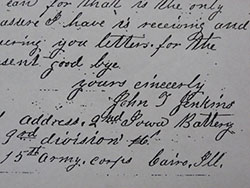 can for that is the only
pleasure I have is receiving and
ancering you letters. for the
present good bye.
yours sincerely
John T Jenkins
address, 2nd Iowa Battery
3rd division 16
15th army, corps Cairo, Ill.